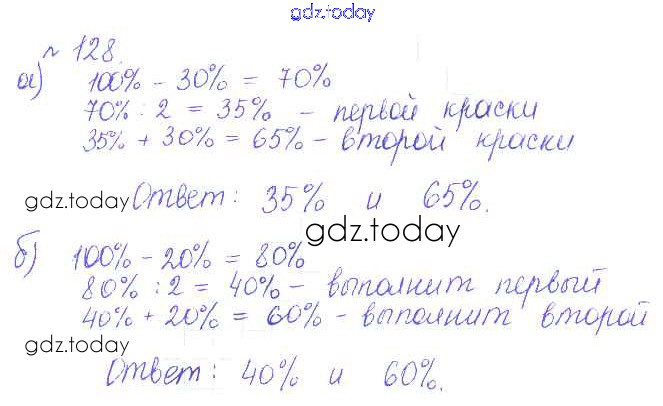 gdz.today
№ 128.
а) 100% - 30% = 70%
70% : 2 = 35% - первой краски
35% + 30% = 65% - второй краски
gdz.today Ответ: 35% и 65%.
gdz.today
б) 100% - 20% = 80%
80% : 2 = 40% - выполнит первый
40% + 20% = 60% - выполнит второй
gdz.today
Ответ: 40% и 60%.